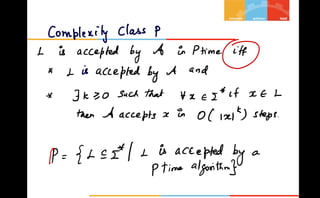 Complexity Class P
L is accepted by A in Ptime iff
* L is accepted by A and
* ∃ k ≥ 0 such that ∀ x ∈ Σ* if x ∈ L
then A accepts x in O(|x|^k) steps.
P = { L ⊆ Σ* / L is accepted by a
P time algorithm}